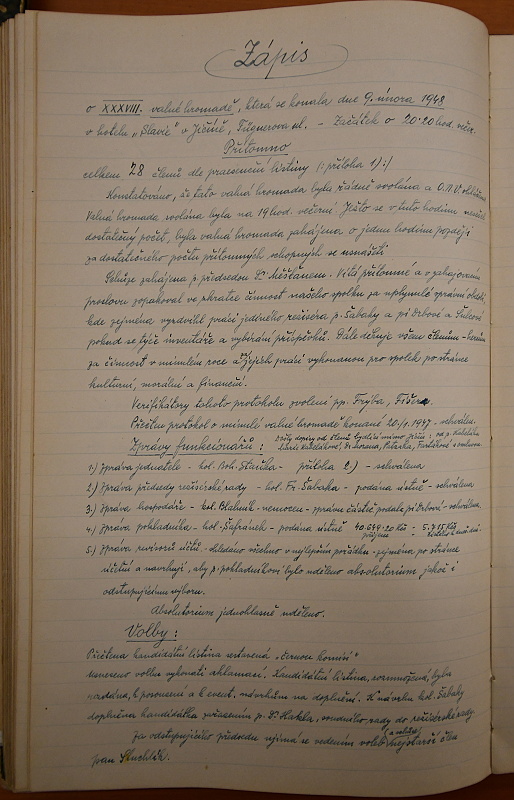 Zápis
o XXXVIII. valné hromadě, která se konala dne 9. února 1948
v hotelu „Slavie" v Jičíně, Fügnerova ul. - Začátek o 20·20 hod. večer.
Přítomno
celkem 28 členů dle praesenční listiny (: příloha 1) :)
Konstatováno, že tato valná hromada byla řádně svolána a O.N.V.
Valná hromada svolána byla na 19 hod. večerní. Ježto se v tuto hodinu
dostatečný počet, byla valná hromada zahájena o jednu hodinu později
za dostatečného počtu přítomných schopných se usnášeti.
Schůze zahájena p. předsedou Měšťanem. Vítá přítomné a v zahajovacím
proslovu zopakoval ve zkratce činnost našeho spolku za uplynulé správní období,
kde zejména vyzdvihl práci jediného režiséra p. Šabaky a pí Drbové a
pokud se týče inventáře a vybírání příspěvků. Dále děkuje všem členům
za činnost v minulém roce a jejich práci vykonanou pro spolek po stránce
kulturní, morální a finanční.
Verifikátory tohoto protokolu zvoleni pp. Frýba, Fišera.
Přečten protokol o minulé valné hromadě konané 20./1. 1947 - schválen.
Zprávy funkcionářů: Došly dopisy od členů bydlících mimo Jičín:
1.) Zpráva jednatele - kol. Boh. - příloha 2.) - schválena
2.) Zpráva předsedy režisérské rady - kol. Fr. Šabaka - podána ústně - schválena
3.) Zpráva hospodáře - kol. Blahník - nemocen - zprávu částeč. podala pí Drbová - schválena.
4.) Zpráva pokladníka - kol. Šafránek - podána ústně 40.644·20 Kčs příjem - 5.715 Kčs
5.) Zpráva revisorů účtů - shledáno všechno v nejlepším pořádku - zejména po stránce
účetní a navrhují, aby p. pokladníkovi bylo uděleno absolutorium jakož i
odstupujícímu výboru.
Absolutorium jednohlasně uděleno.
Volby:
Přečtena kandidátní listina sestavená „černou komisí"
usneseno volbu vykonati aklamací. Kandidátní listina, rozmnožená, byla
rozdána k posouzení a k event. návrhům na doplnění. K návrhu kol. Šabaky
doplněna kandidátka přičazením p. Dr. Hakla, soudního rady do režisérské rady
Za odstupujícího předsedu ujímá se vedením voleb nejstarší člen
pan Stuchlík.